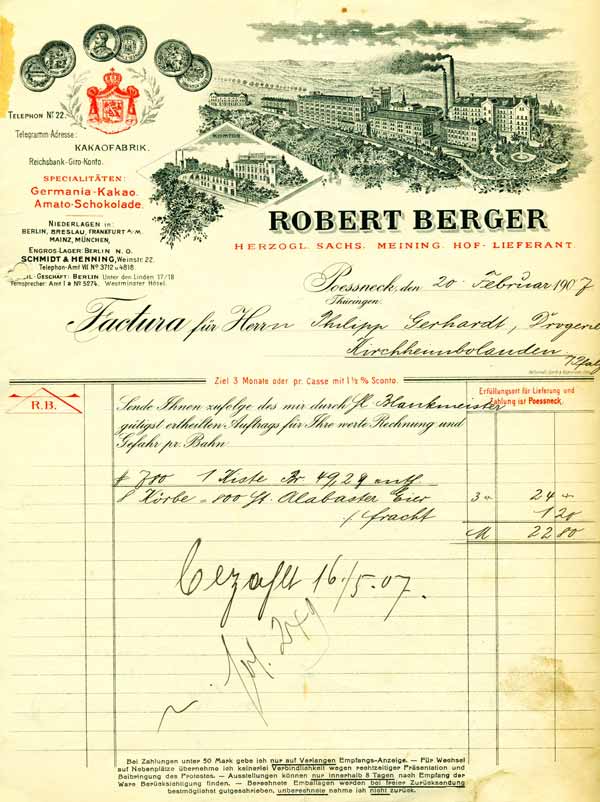 TELEPHON Nº 22.
Telegramm-Adresse:
KAKAOFABRIK.
Reichsbank-Giro-Konto.
SPECIALITÄTEN:
Germania-Kakao.
Amato-Schokolade.
NIEDERLAGEN in:
BERLIN, BRESLAU, FRANKFURT A/M.
MAINZ, MÜNCHEN,
ENGROS-LAGER: BERLIN N.O.
SCHMIDT & HENNING, Weinstr. 22.
Telephon-Amt VII Nº 3712 u 4818.
GESCHÄFT: BERLIN Unter den Linden 17/18
Fernsprecher: Amt I Nº 5274. Westminster Hôtel.
KONTOR
ROBERT BERGER
HERZOGL. SACHS. MEINING. HOF-LIEFERANT.
Poessneck, den 20 Februar 1907
Thüringen.
Factura für Herrn Philipp Gerhardt, Drogerie
Kirchheimbolanden.
Ziel 3 Monate oder pr. Casse mit 1½ % Sconto.
Erfüllungsort für Lieferung und
Zahlung ist Poessneck.
R.B.
Sende Ihnen zufolge des mir durch Blankmeister
gütigst ertheilten Auftrags für Ihre werte Rechnung und
Gefahr pr. Bahn
1 Kiste Br. 49,29 enth.
8 Körbe = 800 St. Alabaster Eier 3 24
/ fracht 1 20
M 22 80
bezahlt 16/5.07.
Bei Zahlungen unter 50 Mark gebe ich nur auf Verlangen Empfangs-Anzeige. — Für Wechsel
auf Nebenplätze übernehme ich keinerlei Verbindlichkeit wegen rechtzeitiger Präsentation und
Beibringung des Protestes. — Ausstellungen können nur innerhalb 8 Tagen nach Empfang der
Ware Berücksichtigung finden. — Berechnete Emballagen werden bei freier Zurücksendung
bestmöglichst gutgeschrieben, unberechnete nehme ich nicht zurück.